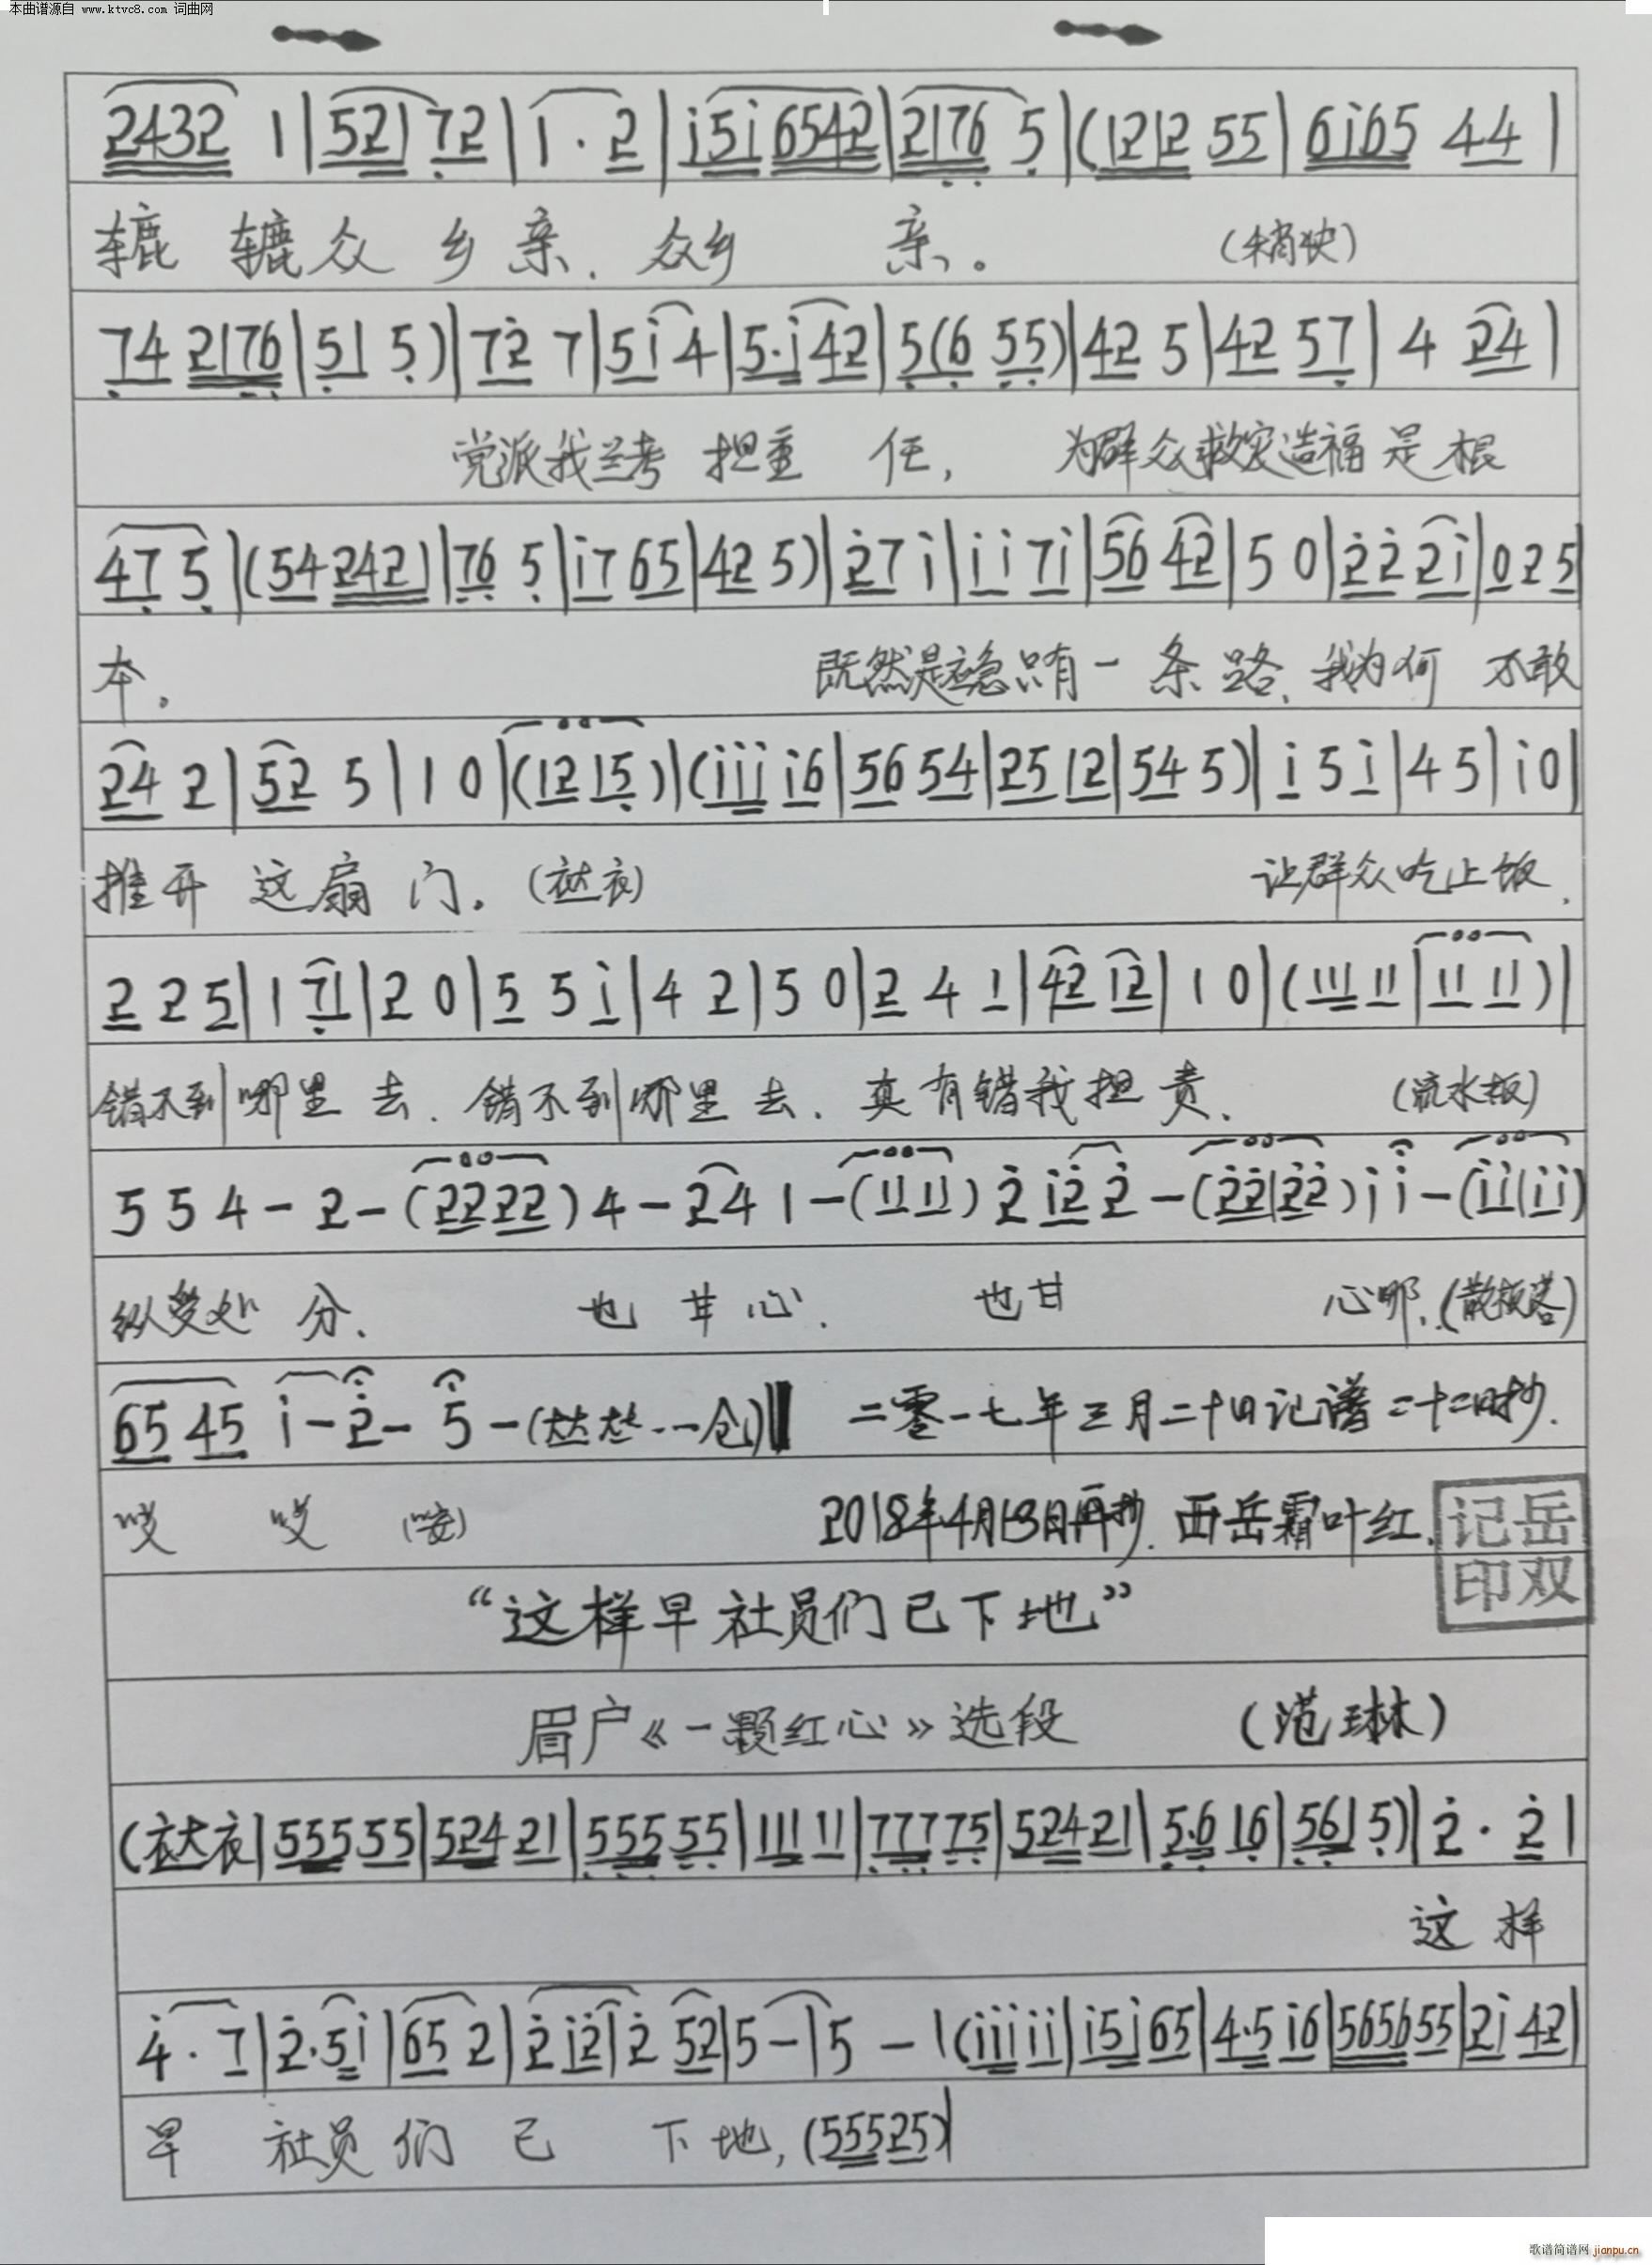 本曲谱源自 www.ktvc8.com 词曲网
2432 1|521 72|i · 2|i5i 6542|2176 5|(1212 55|6i65 44|
辘 辘众 乡 亲, 众乡 亲。 (稍快)
74 2176|51 5)|72 7|5i 4|5·i 42|5(6 55)|42 5|42 57|4 24|
党派我兰考 担重 任, 为群众救灾造福是根
47 5|(54 242)|76 5|i7 65|42 5)|27 i|ii 7i|56 42|5 0|22 2i|0 2 5|
本。 既然是应急只有一 条 路, 我为何 不敢
24 2|52 5|1 0|(12 15)|(iii i6|56 54|25 12|54 5)|i 5 i|4 5|i 0|
推开 这扇 门。(衣大衣) 让群众吃上饭,
2 2 5|1 71|2 0|5 5 i|4 2|5 0|2 4 1|42 12|1 0|(111 11|11 11)|
错不到哪里 去, 错不到哪里 去, 真有错我担 责, (流水板)
5 5 4 - 2 - (22 22) 4 - 24 1 - (11 11) 2 i2 2 - (22|22) i i - (ii|ii)
纵受处 分, 也 甘 心, 也甘 心哪,(散板塔)
65 45 i - 2 - 5 - (大大 大 - - 仓)‖ 二零一七年三月二十四记谱二十二日抄.
哎 哎 (咹) 2018年4月13日再抄. 西岳霜叶红.
记岳
印双
“这样早社员们已下地”
眉户《一颗红心》选段 (范琳)
(衣大衣|555 55|524 21|555 55|111 11|777 75|524 21|5·6 16|561 5)|2 · 2|
这 样
4 · 7|2·5i|65 2|2 i2|2 52|5 -|5 - |(iii ii|i5i 65|4·5 i6|5656 55|2i 42|
早 社员们 已 下 地,(555 25)|
歌谱简谱网 jianpu.cn